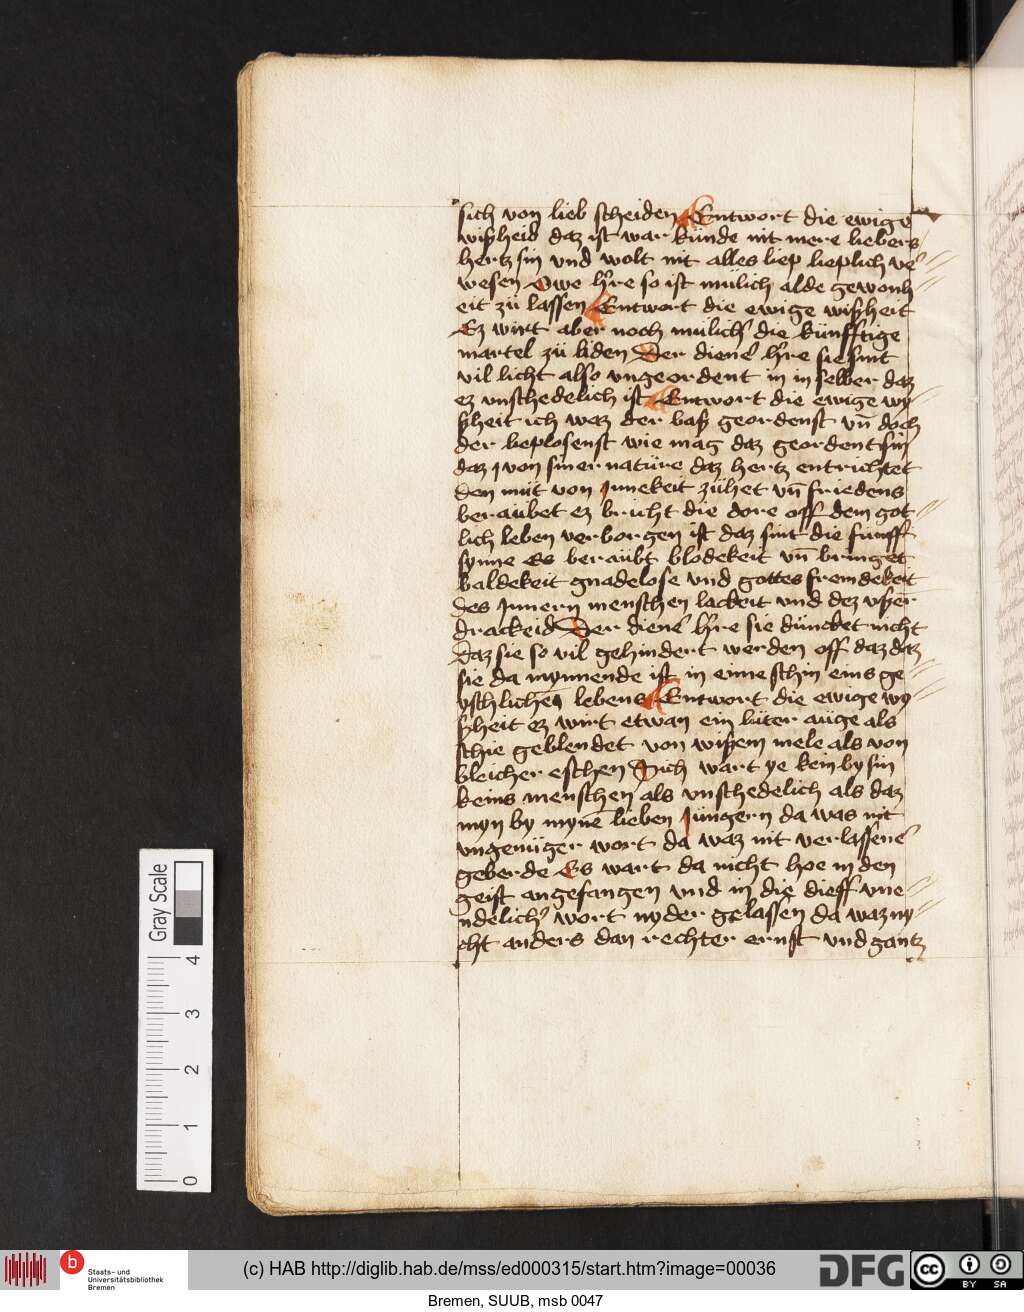 sich von lieb scheiden Entwort die ewige
wißheid daz ist war kunde nit mere liebers
hertz sin vnd wolt nit alles liep lieplich ve
wesen Owe hre so ist mülich alde gewonh
eit zü lassen Entwort die ewige wißheit
Ez wirt aber noch mülich die künfftige
martel zü liden Der diene hre sie sint
vil licht also vngeordent in in selber daz
ez vnschedelich ist Entwort die ewige wy
ßheit ich waz der baß geordenst vn̄ doch
der beplosenst wie mag daz geordent sin
daz von siner natüre daz hertz entrichtet
den müt von Innekeit zühet vn̄ friedens
beraübet ez bricht die dore off dem got
lich leben verborgen ist daz sint die fünff
synne Es beraübt blodekeit vn̄ bringet
baldekeit gnadelose vnd gottes fremdekeit
des Innern menschen lackeit vnd dez vßer
drackeid Der diene hre sie düncket nicht
Daz sie so vil gehindert werden off daz daz
sie da mynnende ist in eime schin eins ge
yschlichen lebens Entwort die ewige wy
ßheit ez wirt etwan ein lüter aüge als
schie geblendet von wißem mele als von
bleicher eschen Sich wart ye kein by sin
keins menschen als vnschedelich als daz
myn by myne lieben Jüngern da was nit
vngenüger wort da waz nit verlassene
geberde Es wart da nicht hoe in den
geist angefangen vnd in die dieff vne
ndelich wort nyder gelassen da waz ny
cht anders dan rechter ernst vnd gantz
Gray Scale
4
3
2
1
0
b
Staats- und
Universitätsbibliothek
Bremen
(c) HAB http://diglib.hab.de/mss/ed000315/start.htm?image=00036
DFG
cc
BY SA
Bremen, SUUB, msb 0047